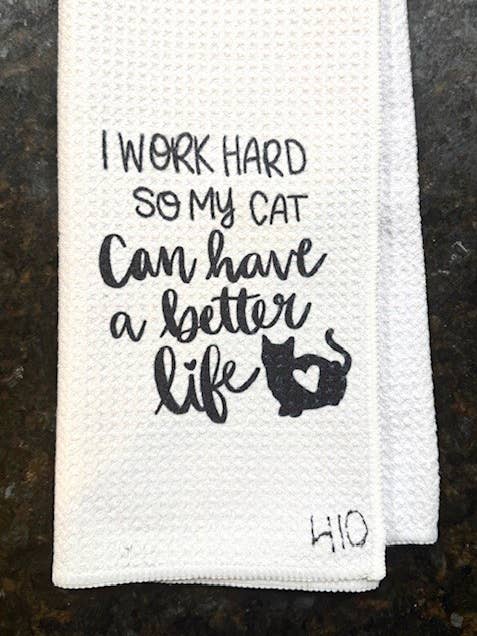 I WORK HARD
SO MY CAT
Can have
a better
life
410